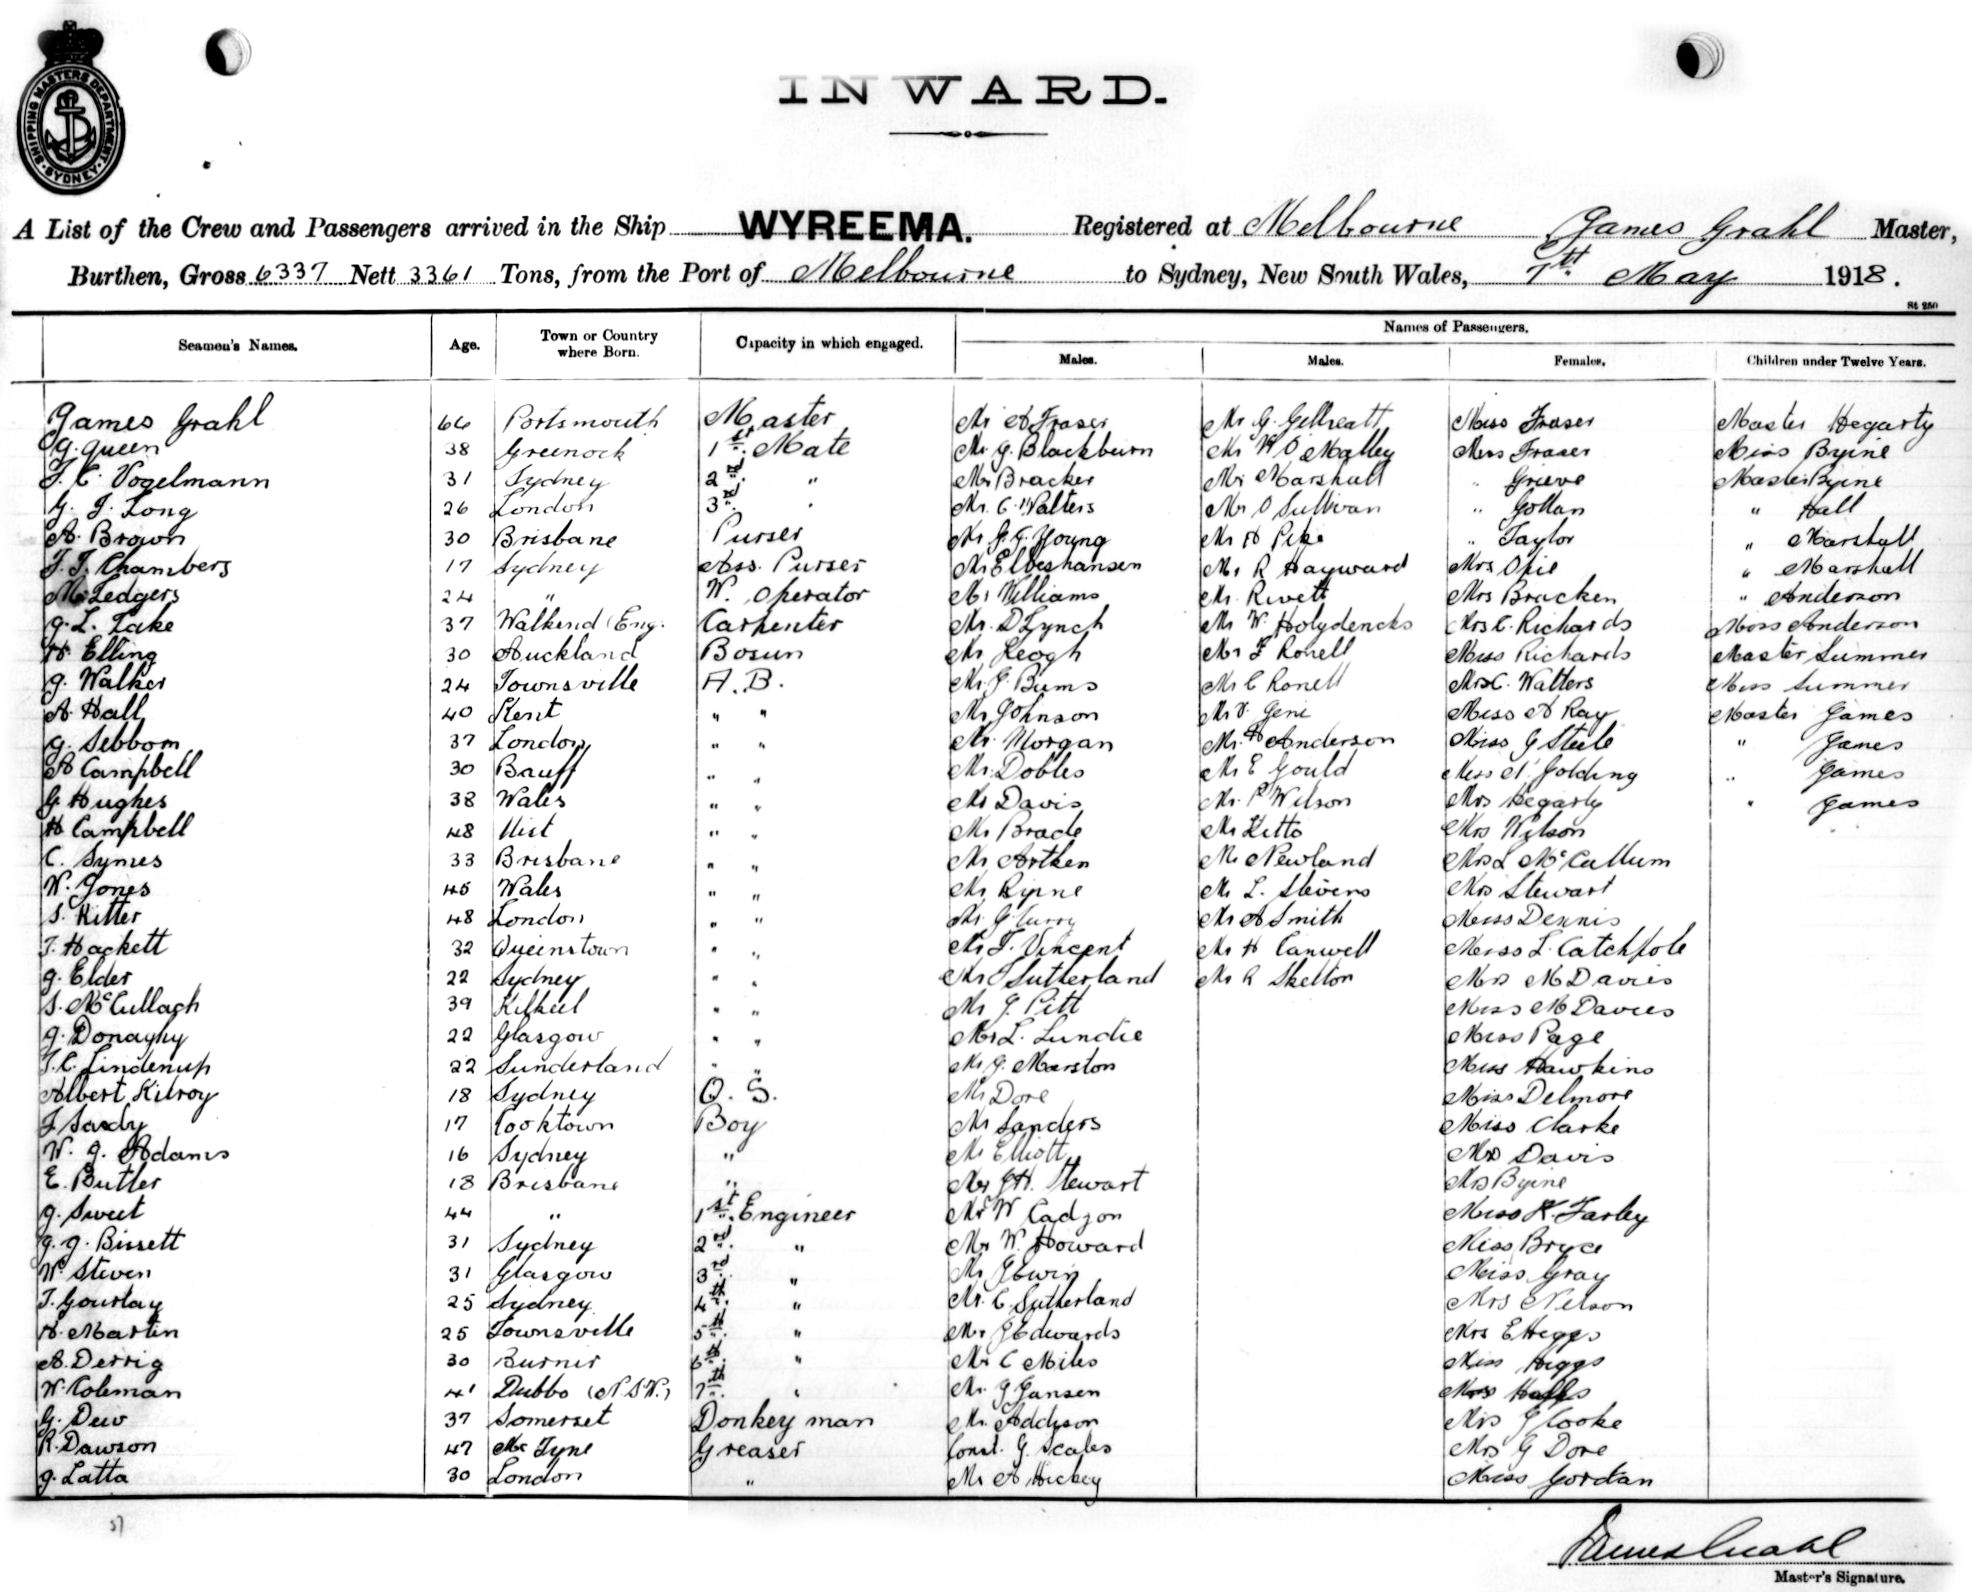 SHIPPING MASTERS DEPARTMENT · SYDNEY ·
INWARD.
A List of the Crew and Passengers arrived in the Ship WYREEMA. Registered at Melbourne James Grahl Master,
Burthen, Gross 6337 Nett 3361 Tons, from the Port of Melbourne to Sydney, New South Wales, 7th May 1918.
St 250
Seamen's Names. Age. Town or Country where Born. Capacity in which engaged. Names of Passengers.
Males. Males. Females. Children under Twelve Years.
James Grahl 66 Portsmouth Master Mr A Fraser Mr G. Gellreatt Miss Fraser Master Hegarty
J. Queen 38 Greenock 1st. Mate Mr. J. Blackburn Mr W O Malley Miss Fraser Miss Byrne
T. C. Vogelmann 31 Sydney 2nd. " Mr Bracker Mr Marshall " Grieve Master Byrne
G. T. Long 26 London 3rd. " Mr. C. Walters Mr O Sullivan " Gollan " Hall
A. Brown 30 Brisbane Purser Mr J. G. Young Mr H Pike " Taylor " Marshall
T. J. Chambers 17 Sydney Ass. Purser Mr E Mr R Hayward Mrs Opie " Marshall
M. Ledgers 24 " W. Operator Mr Williams Mr. Rivett Mrs Bracken " Anderson
J. L. Take 37 Walkend (Eng. Carpenter Mr. D Lynch Mr W. Mrs C. Richards Miss Anderson
H Elling 30 Auckland Bosun Mr Keogh Mr F Ronell Miss Richards Master Summer
J. Walker 24 Townsville A.B. Mr. J. Burns Mr C Ronell Mrs C. Walters Miss Summer
A. Hall 40 Kent " " Mr Johnson Mr V. Geni Miss A Ray Master James
J. Sebbom 37 London " " Mr. Morgan Mr. A Anderson Miss G Steele " James
A Campbell 30 Banff " " Mr. Dobles Mr E Gould Miss N. Golding " James
G Hughes 38 Wales " " Mr Davis Mr. P Wilson Mrs Hegarty " James
H Campbell 48 Uist " " Mr Brade Mr Kitto Mrs Wilson
C. Symes 33 Brisbane " " Mr Aitken Mr Newland Mrs L McCullum
W. Jones 45 Wales " " Mr Byrne Mr L. Stevens Mrs Stewart
S. Kitter 48 London " " Mr. G. Curry Mr A Smith Miss Dennis
T. Hackett 32 Queenstown " " Mr F. Vincent Mr H Canwell Miss L. Catchpole
J. Elder 22 Sydney " " Mr J Sutherland Mr R Skelton Mrs M Davies
S. McCullagh 39 Kilkeel " " Mr J. Pitt Miss M Davies
J. Donaghy 22 Glasgow " " Mr L. Lundie Miss Page
T. C. Lindenup 22 Sunderland " " Mr J. Marston Miss Hawkins
Albert Kilroy 18 Sydney O. S. Mr Dore Miss Delmore
J Saxby 17 Cooktown Boy Mr Sanders Miss Clarke
W. J. Adams 16 Sydney " Mr Elliott Mrs Davis
E. Butler 18 Brisbane " Mr J H. Stewart Mrs Byrne
J. Sweet 44 " 1st. Engineer Mr W Cadzon Miss K. Farley
J. J. Bissett 31 Sydney 2nd. " Mr W. Howard Miss Bryce
W. Steven 31 Glasgow 3rd. " Mr J Ewin Miss Gray
T. Gourlay 25 Sydney 4th. " Mr. C. Sutherland Mrs Nelson
H. Martin 25 Townsville 5th. " Mr J Edwards Mrs E Higgs
A. Derrig 30 6th. " Mr C Miles Miss Higgs
W. Coleman 41 Dubbo (N.S.W.) 7th. " Mr. J Jansen
G. Dew 37 Somerset Donkey man Mr. Addison Mrs J Cooke
R. Dawson 47 Tyne Greaser Const. G. Scales Mrs G Dore
J. Latta 30 London " Mr A Hickey Miss Gordan
James Grahl
Master's Signature.